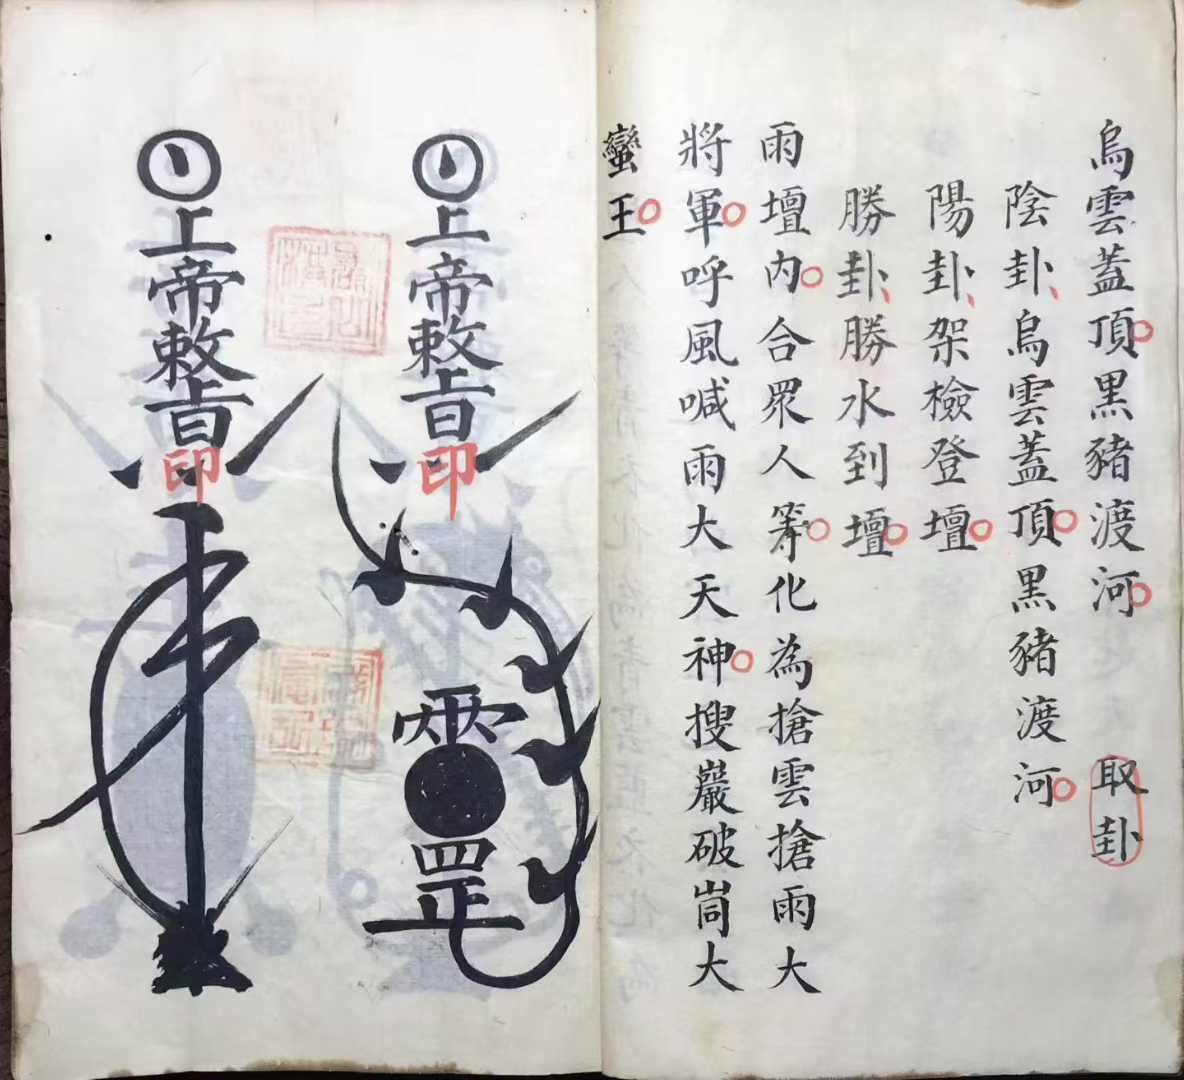 烏雲蓋頂黑豬渡河 取卦
陰卦烏雲蓋頂黑豬渡河
陽卦架檢登壇
勝卦勝水到壇
雨壇內合眾人籌化為搶雲搶雨大
將軍呼風喊雨大天神搜巖破峝大
蠻王
上帝敕旨
印
罡
上帝敕旨
印